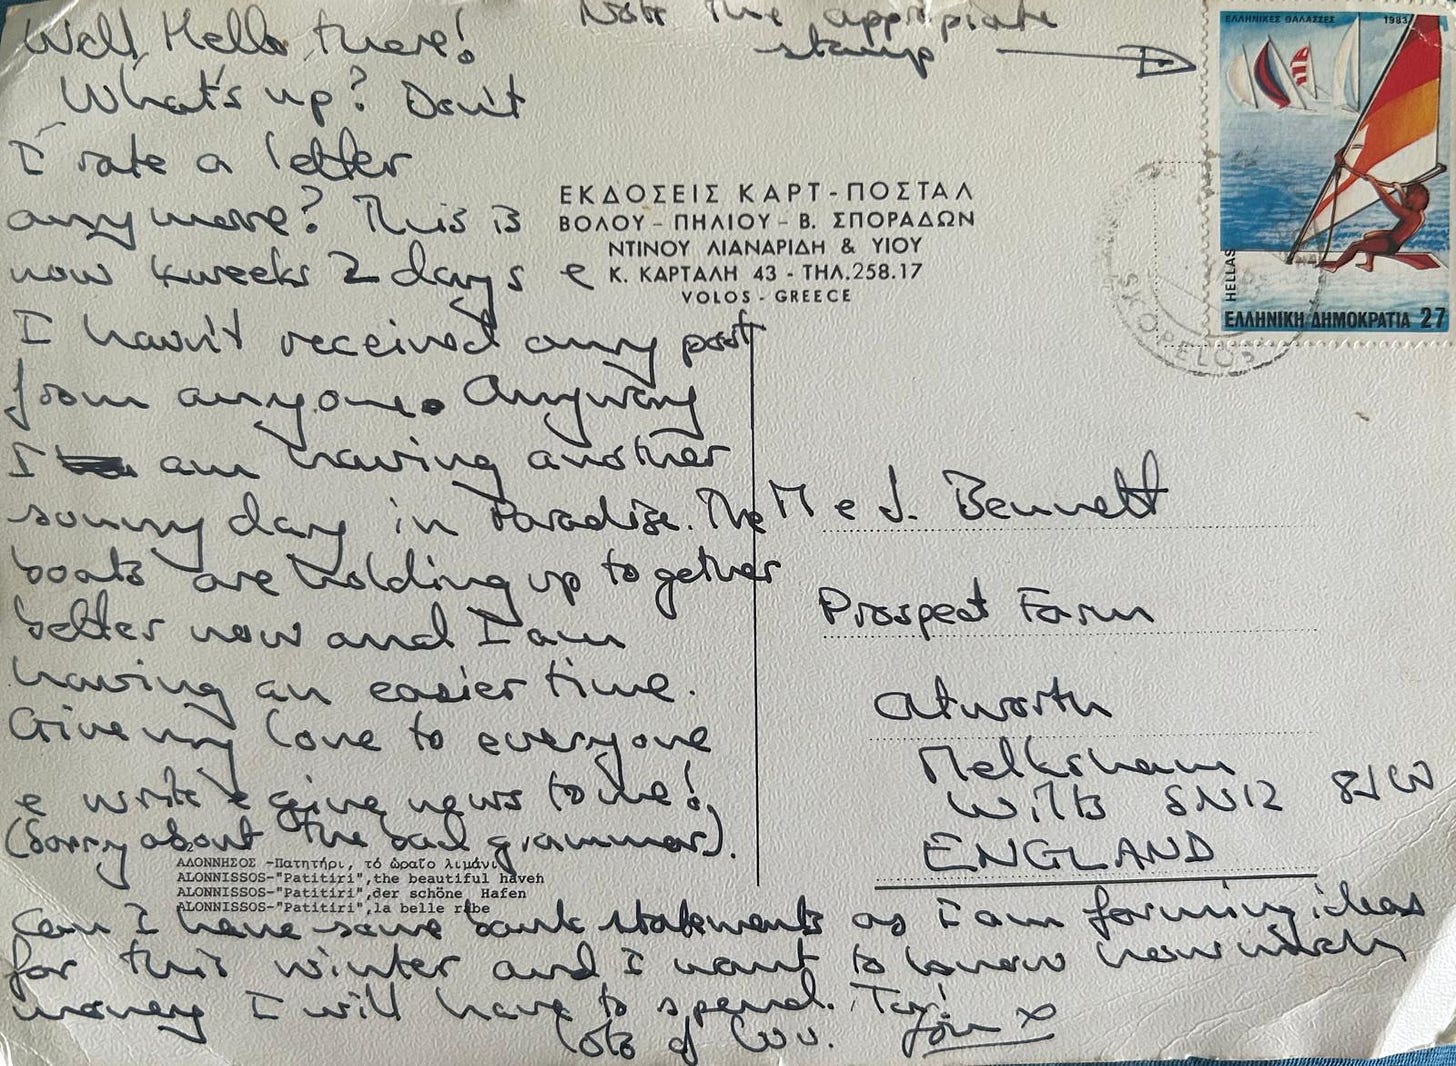 Well, Hello there!
What's up? Don't
I rate a letter
anymore? This is
now 4 weeks 2 days e
I havn't received any post
from anyone. Anyway
I am having another
sunny day in Paradise. The
boats are holding up together
better now and I am
having an easier time.
Give my love to everyone
e write e give news to me!
(Sorry about the bad grammar).
Can I have some bank statements as I am forming ideas
for this winter and I want to know how much
money I will have to spend. Ta!
Lots of luv. Jon x
Note the appropriate
stamp
ΕΛΛΗΝΙΚΕΣ ΘΑΛΑΣΣΕΣ 1983
HELLAS
ΕΛΛΗΝΙΚΗ ΔΗΜΟΚΡΑΤΙΑ 27
SKOPELOS
ΕΚΔΟΣΕΙΣ ΚΑΡΤ-ΠΟΣΤΑΛ
ΒΟΛΟΥ - ΠΗΛΙΟΥ - Β. ΣΠΟΡΑΔΩΝ
ΝΤΙΝΟΥ ΛΙΑΝΑΡΙΔΗ & ΥΙΟΥ
Κ. ΚΑΡΤΑΛΗ 43 - ΤΗΛ.258.17
VOLOS - GREECE
M e J. Bennett
Prospect Farm
Atworth
Melksham
Wilts SN12 8JW
ENGLAND
ΑΛΟΝΝΗΣΟΣ -Πατητήρι, τό ὡραῖο λιμάνι
ALONNISSOS-"Patitiri",the beautiful haven
ALONNISSOS-"Patitiri",der schöne Hafen
ALONNISSOS-"Patitiri",la belle rabe